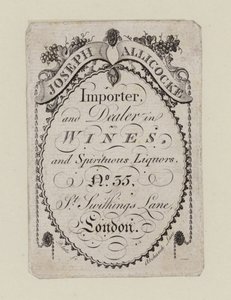 JOSEPH ALLICOCKE
Importer,
and Dealer in
WINES,
and Spirituous Liquors.
No. 35.
St. Swithings Lane,
London.